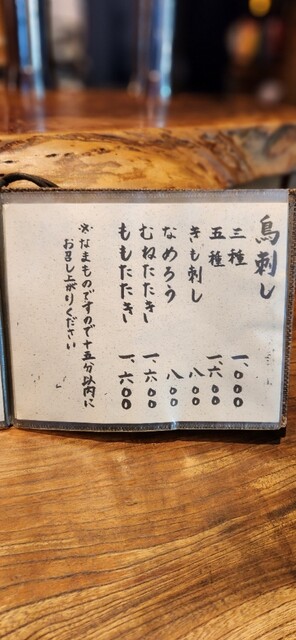 鳥刺し
三種 一、〇〇〇
五種 一、六〇〇
きも刺し 八〇〇
なめろう 八〇〇
むねたたき 一、六〇〇
ももたたき 一、六〇〇
※なまものですので十五分以内に
お召し上がりください